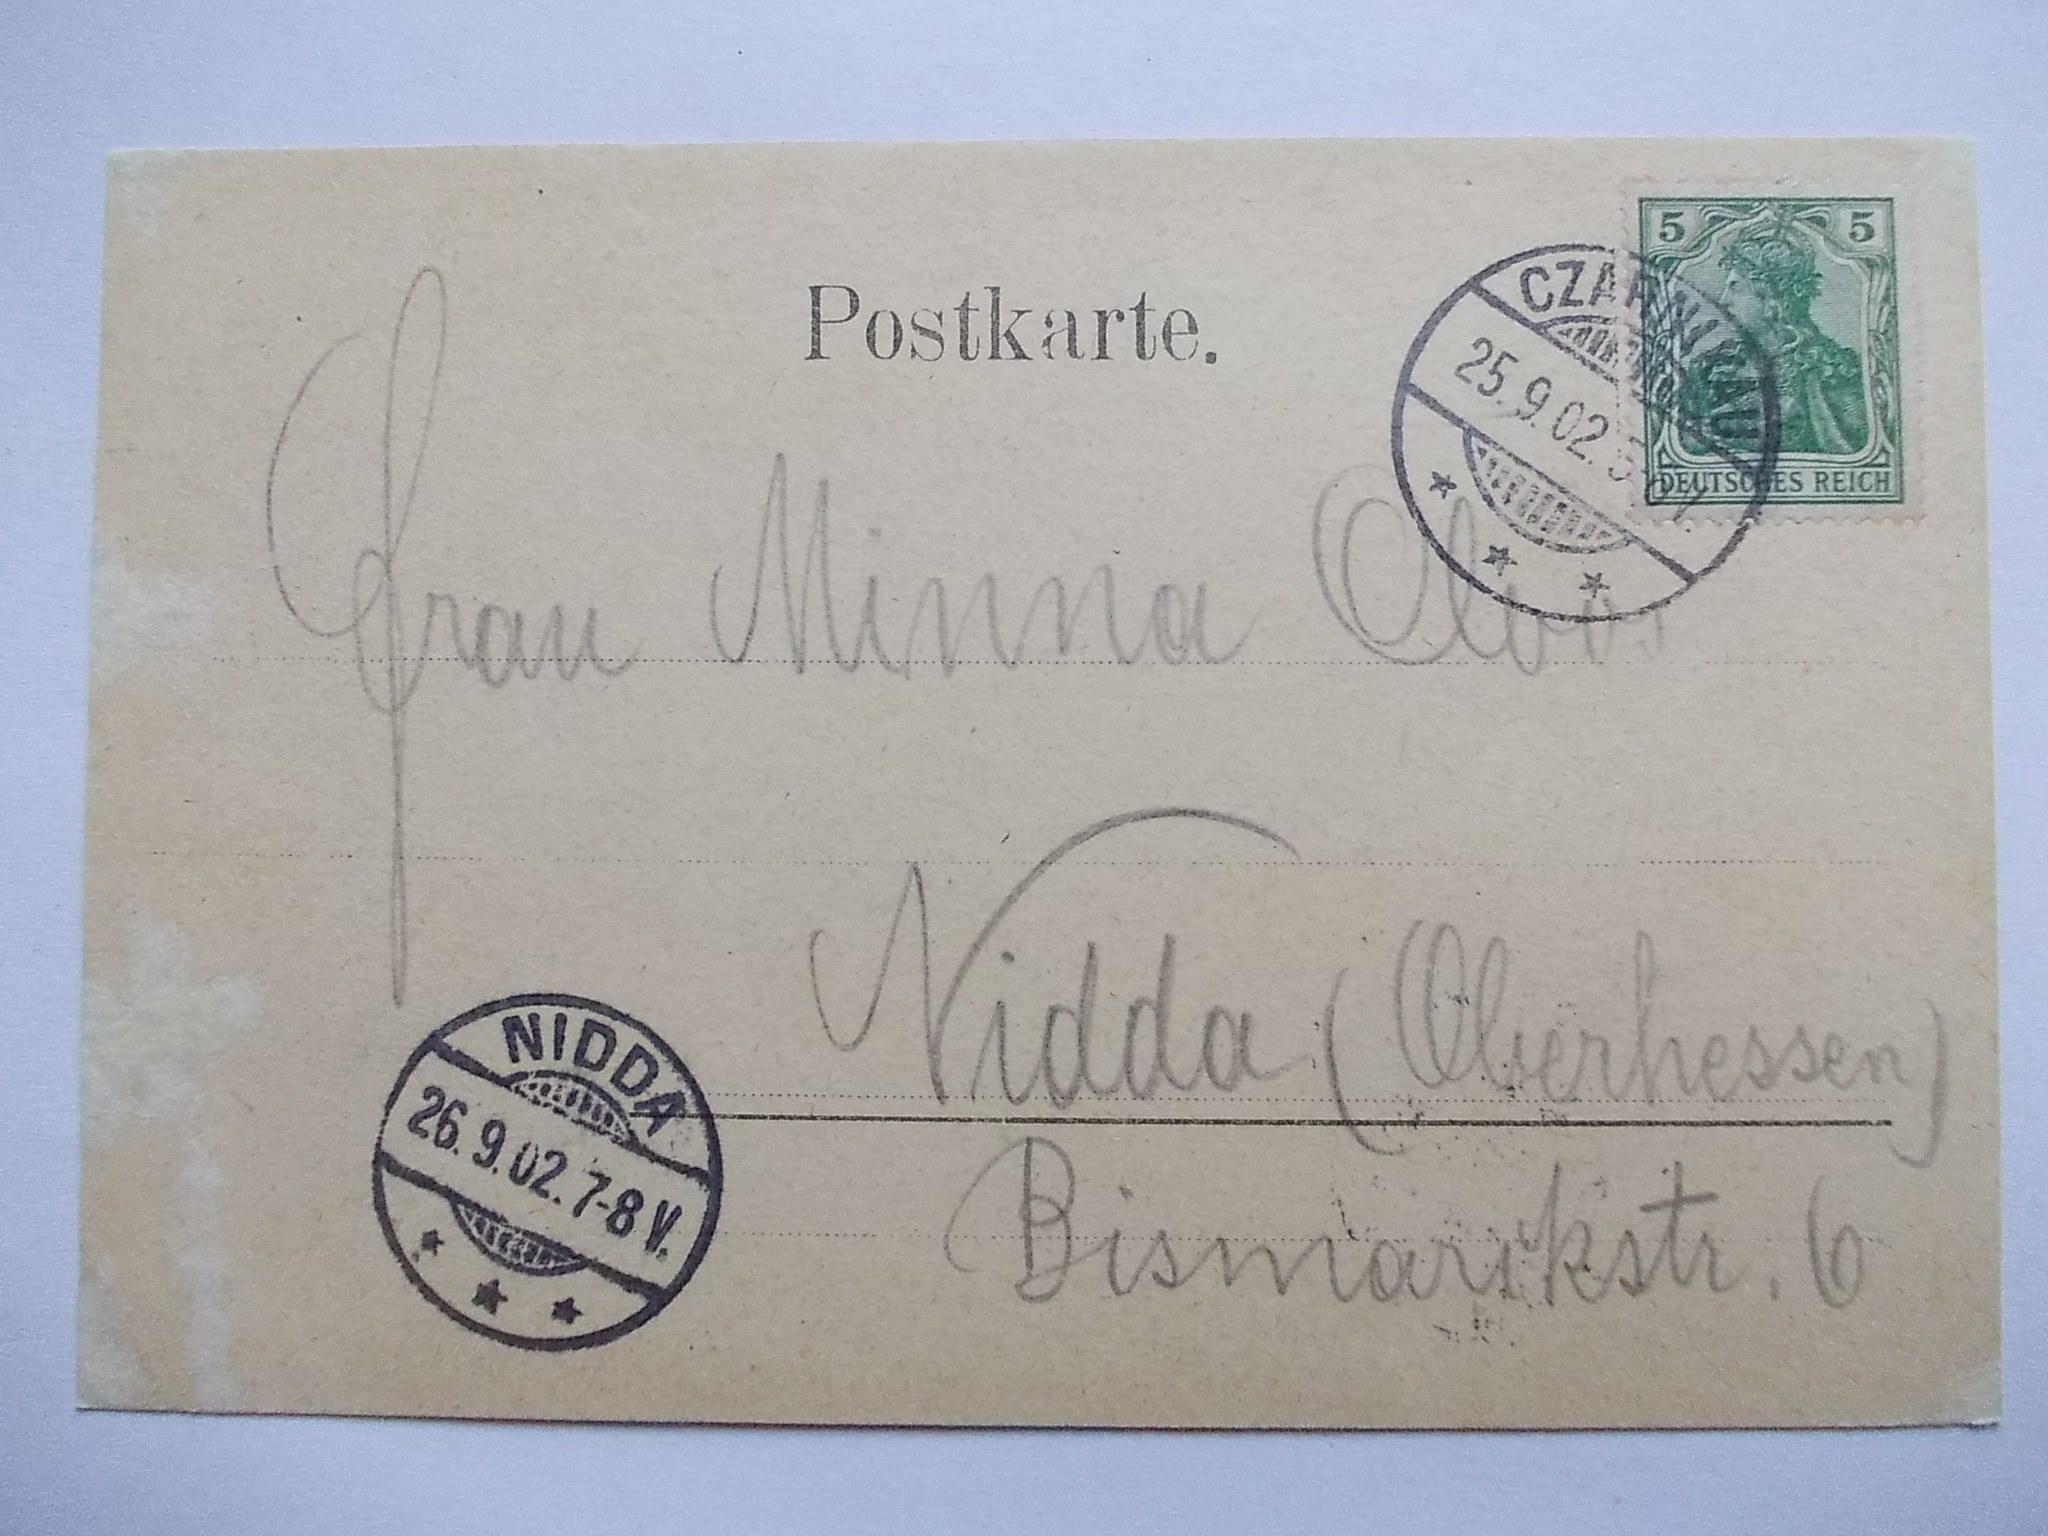 Postkarte.
5 5
DEUTSCHES REICH
25.9.02.
Frau Minna
Nidda (Oberhessen)
Bismarkstr. 6
NIDDA
26.9.02.7-8V.